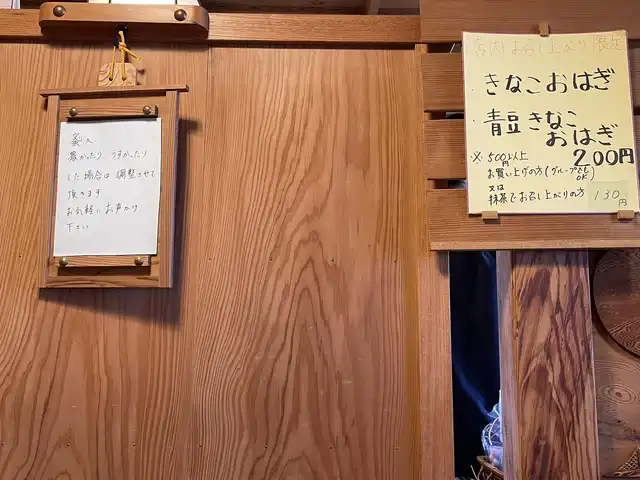 濃かったり うすかったり
した場合は 調整させて
頂きます
お気軽に お声かけ
下さい
店内お召し上がり限定
きなこおはぎ
青豆きなこ
おはぎ
200円
※ 500円以上
お買い上げの方(グループでもOK)
又は
抹茶でお召し上がりの方 130円